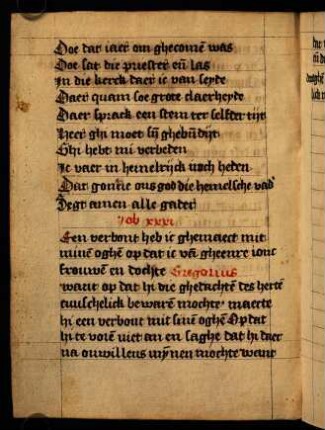 Doe dat iaer om ghecomē was
Doe sat die priester eñ las
In die kerck daer ic van seyde
Daer quam soe grote claerheyde
Daer sprack een stem ter selfder tijt
Heer ghi moet sij ghebñdijt
Ghi hebt mi verbeden
Ic vaer in hemelrijck noch heden
Dat gonne ons god die hemelsche vad'
Segt amen alle gader
Job xxxi
Een verbont heb ic ghemaect mit
minē oghē op dat ic vā gheenre ionc
frouwen en dochte Gregorius
want op dat hi die ghedachtē des hertē
cuuschelick bewarē mochte maecte
hi een verbont mit sinē oghē Op dat
hi te vorē niet an en saghe dat hi daer
na onwillens mȳnen mochte want